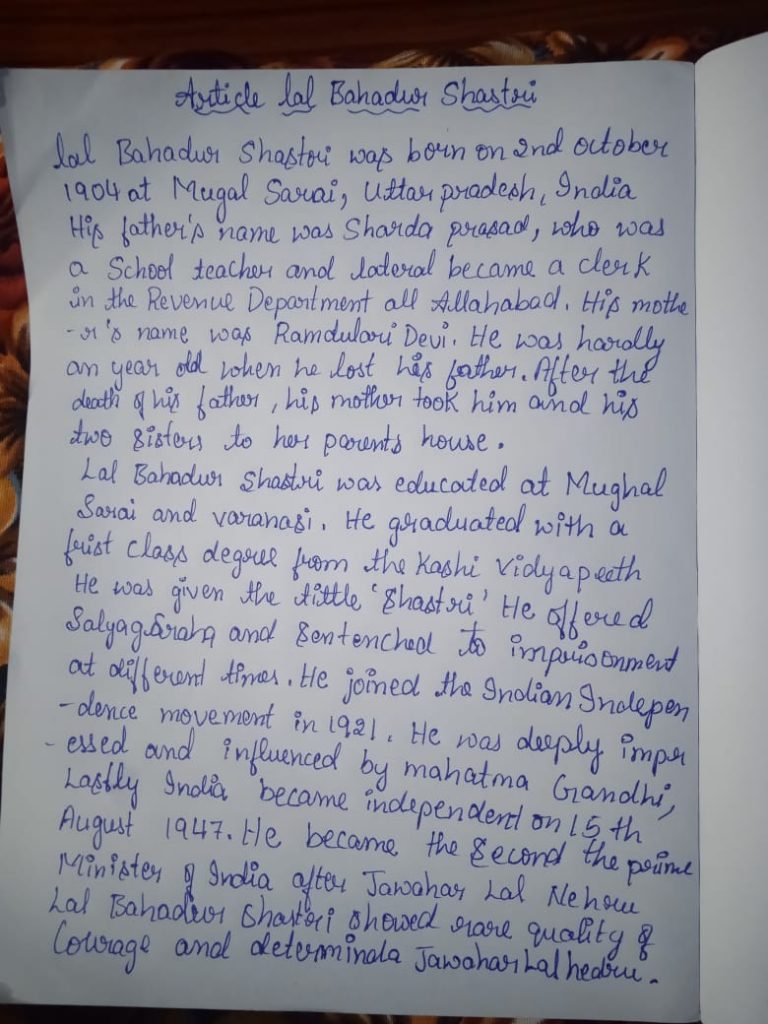 Article lal Bahadur Shastri
lal Bahadur Shastri was born on 2nd october
1904 at Mugal Sarai, Uttar pradesh, India
His father's name was Sharda prasad, who was
a School teacher and lateral became a clerk
in the Revenue Department all Allahabad. His mothe
-r's name was Ramdulari Devi. He was hardly
an year old when he lost his father. After the
death of his father, his mother took him and his
two sisters to her parents house.
Lal Bahadur Shastri was educated at Mughal
Sarai and varanasi. He graduated with a
frist class degree from the Kashi Vidyapeeth
He was given the tittle 'Shastri' He offered
Salyagsraha and Sentenched to imprisonment
at different times. He joined the Indian Indepen
-dence movement in 1921. He was deeply impr
-essed and influenced by mahatma Gandhi,
Lastly India became independent on 15 th
August 1947. He became the Second the prime
Minister of India after Jawahar Lal Nehru
Lal Bahadur Shastri showed rare quality of
Courage and determinala Jawahar Lal hedru.